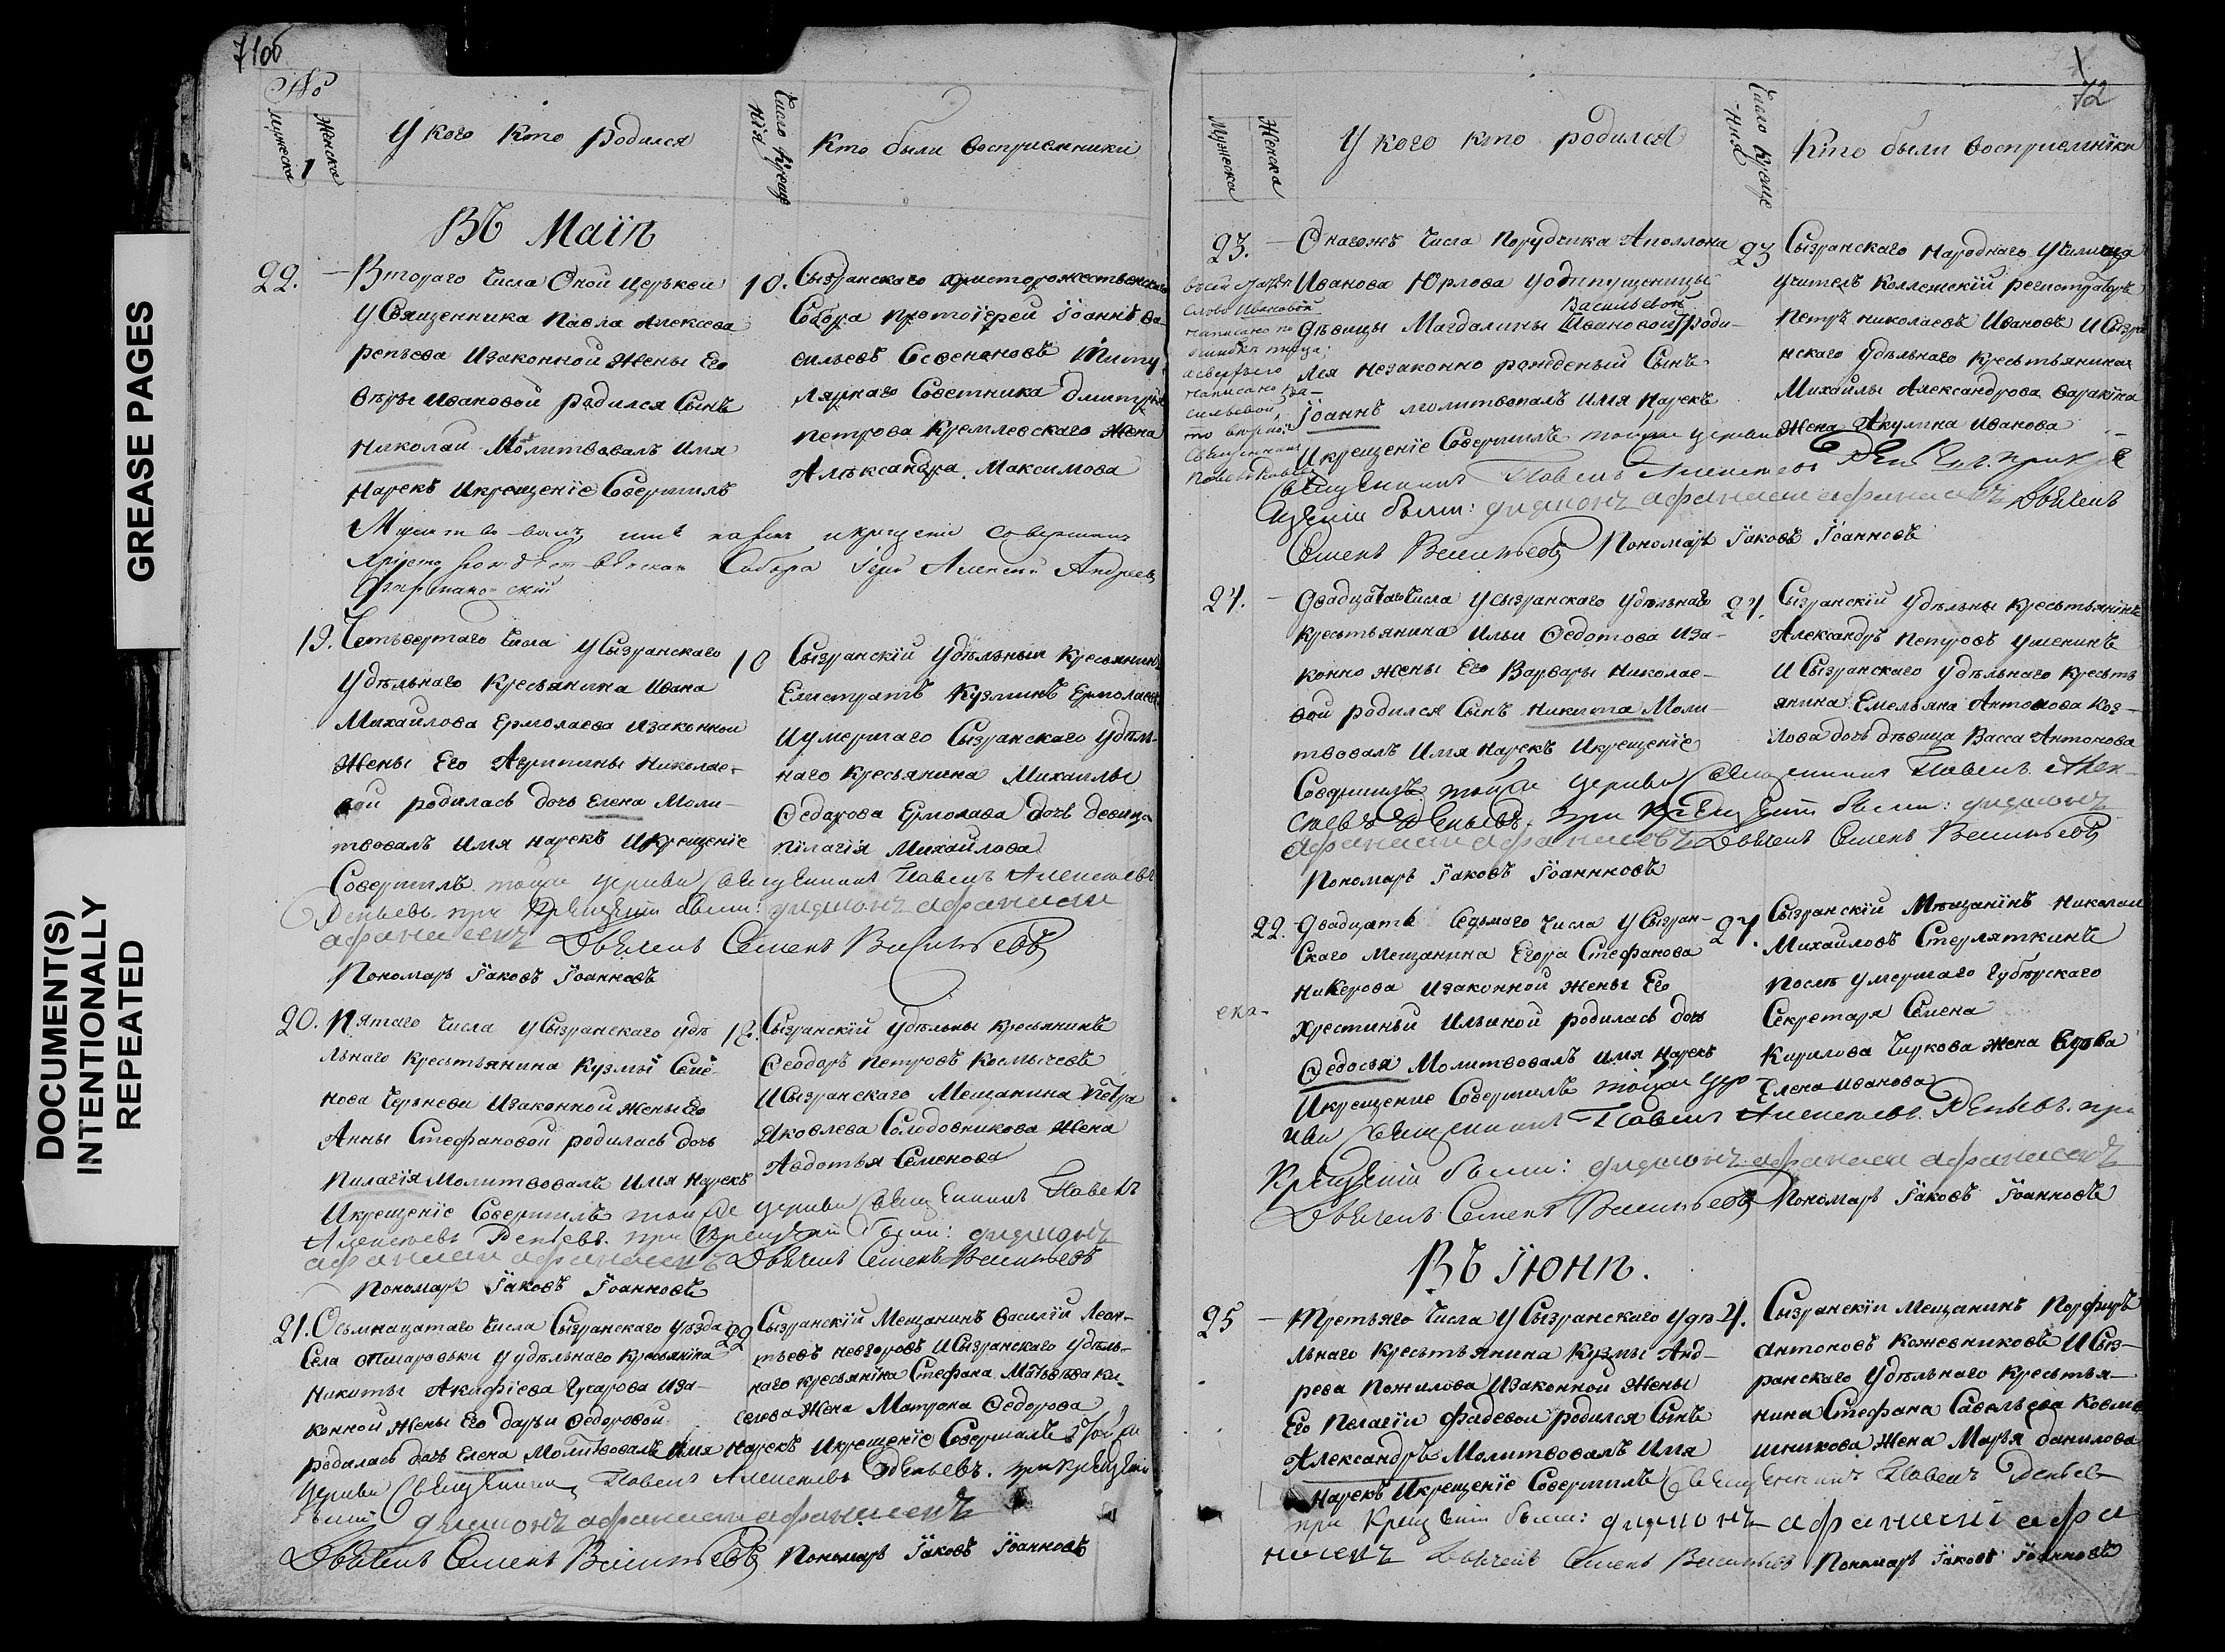 71об
№
Мужеска
Женска
1
У кого кто родился
Число Креще
нiя
Кто были восприемники
Въ Маiѣ
22.
Втораго числа Оной церькви
У Священника Павла Алексѣева
репьева Изаконной жены Его
Вѣры Ивановой родился Сынъ
Николай Молитвовалъ Имя
Нарекъ Икрещенiе Совершилъ
10.
Сызранскаго христорожественскаго
Собора протоiерей Iоаннъ Ва-
сильевъ И Титу
лярнаго Советника дмитрiя
петрова Кремлевскаго Жена
Алѣксандра Максимова
Молитвовалъ имя нарекъ икрещенiе совершилъ
Собора Iерей Алексiй Андреевъ
19.
Четьвертаго числа У Сызранскаго
Удѣльнаго Кресьянина Ивана
Михайлова Ермолаева Изаконной
Жены Его Агрипины Николае-
вой родилась дочь Елена Моли-
твовалъ Имя нарекъ Икрещенiе
Совершилъ тойже церкви священникъ Павелъ Алексѣевъ
Репьевъ. при Крещенiи были: дiаконъ афанасiй
афанасьевъ Дьячекъ Семенъ Васильевъ
Пономарь Iаковъ Iоанновъ
10
Сызранскiй Удѣльный Кресьянинъ
Елистратъ Кузминъ Ермолаевъ
Иумершаго Сызранскаго Удѣль-
наго Кресьянина Михаилы
Федорова Ермолаева дочь девица
пiлагiя Михайлова
20.
Пятаго числа У Сызранскаго Удѣ
льнаго Крестьянина Кузмы Семё-
нова Изаконной жены Его
Анны Стефановой родилась дочь
Пилагiя Молитвовалъ Имя Нарекъ
Икрещенiе Совершилъ тойже церкви священникъ Павелъ
Алексѣевъ Репьевъ. при Крещенiи были: дiаконъ
афанасiй афанасьевъ Дьячекъ Семенъ Васильевъ
Пономарь Iаковъ Iоанновъ
Сызранскiй Удѣльны Кресьянинъ
Феодоръ Петровъ
И Сызранскаго Мещанина Петра
Яковлева Солодовникова Жена
Авдотья Семенова
21.
Осьмнацатаго числа Сызранскаго уѣзда
Села У удѣльнаго Кресьянiна
Никиты Иза-
конной жены Его дарьи Федоровой
родилась дочь Елена Молитвовалъ Имя Нарекъ Икрещенiе Совершилъ тойже
церкви священникъ Павелъ Алексѣевъ Репьевъ. при крещенiи
были дiаконъ афанасiй афанасьевъ
Дьячекъ Семенъ Васильевъ Пономарь Iаковъ Iоанновъ
22
Сызранскiй Мещанинъ Василiй Леон-
тьевъ И Сызранскаго Удѣль-
наго кресьянiна Стефана Матьвѣева Ки-
селева Жена Матрона Федорова
72
Мужеска
Женска
У кого кто родился
Число Креще
-нiя
Кто были восприемнiки
23.
Онагожъ числа Порудчика Аполлона
Иванова Юрлова У отпущеницы
Васильевой
дѣвицы Магдалины Ивановой роди-
лся незаконно рожденый Сынъ
Iоаннъ молитвовалъ Имя Нарекъ
Икрещенiе Совершилъ тойже церкви
священникъ Павелъ Алексѣевъ Репьевъ. при кре
щенiи были: дiаконъ афанасiй афанасьевъ Дьячекъ
Семенъ Васильевъ Пономарь Iаковъ Iоанновъ
въсей графѣ
Слово Ивановой
написано по
ошибкѣ писца;
асверьхъ его
написано Ва-
сильевой,
то вѣрно:
Священникъ
Павелъ Репьевъ
23
Сызранскаго Народнаго Училища
Учитель Коллежскiй регистраторъ
Петръ Николаевъ Ивановъ И Сызра
нскаго Удѣльнаго Крестьянина
Михайлы Александрова Варакiна
Жена Акулина Иванова
24.
Двадцатаго числа У Сызранскаго Удѣльнаго
Крестьянина Ильи Федотова Иза-
конно жены Его Варвары Николае-
вой родился Сынъ Никита Моли-
твовалъ Имя нарекъ Икрещенiе
Совершилъ тойже церкви священникъ Павелъ Алек-
сѣевъ Репьевъ. при Крещенiи были: дiаконъ
афанасiй афанасьевъ Дьячекъ Семенъ Васильевъ
Пономарь Iаковъ Iоанновъ
27.
Сызранскiй Удѣльны Крестьянiнъ
Александръ Петровъ
И Сызранскаго Удѣльнаго Кресть
янина Емельяна Антонова Коз-
лова дочь дѣвица Васса Антонова
22.
Двадцать Седьмаго числа У Сызран-
Скаго Мещанина Егора Стефанова
Никерова Изаконной жены Его
Хрестиньи Ильиной родилась дочь
Федосья Молитвовалъ Имя Нарекъ
Икрещение Совершилъ тойже цер
кви священникъ Павелъ Алексѣевъ Репьевъ. при
Крещенiи были: дiаконъ афанасiй афанасьевъ
Дьячекъ Семенъ Васильевъ Пономарь Iаковъ Iоанновъ
27.
Сызранскiй Мѣщанiнъ Николай
Михайловъ Стерляткинъ
послѣ умершаго Губѣрскаго
Секретаря Семена
Кирилова Чиркова жена Вдова
Елена Иванова
Въ Iюнѣ.
25
Третьяго числа У Сызранскаго Удѣ-
льнаго Крестьянина Кузмы Анд-
рева Пожилова Изаконной Жены
Его Пелагiи Фадевой родился Сынъ
Александръ Молитвовалъ Имя
Нарекъ Икрещенiе Совершилъ Священникъ Павелъ Репьев
при Крещенiи были: дiаконъ афанасiй афа
насьевъ Дьячекъ Семенъ Васильев Пономарь Iаковъ Iоанновъ
4.
Сызранскiй Мещанинъ Порфиръ
Антоновъ Кожевниковъ И Сыз-
ранскаго Удѣльнаго Крестья-
нина Стефана Савельева
Жена Марья Данилова
GREASE PAGES
DOCUMENT(S)
INTENTIONALLY
REPEATED